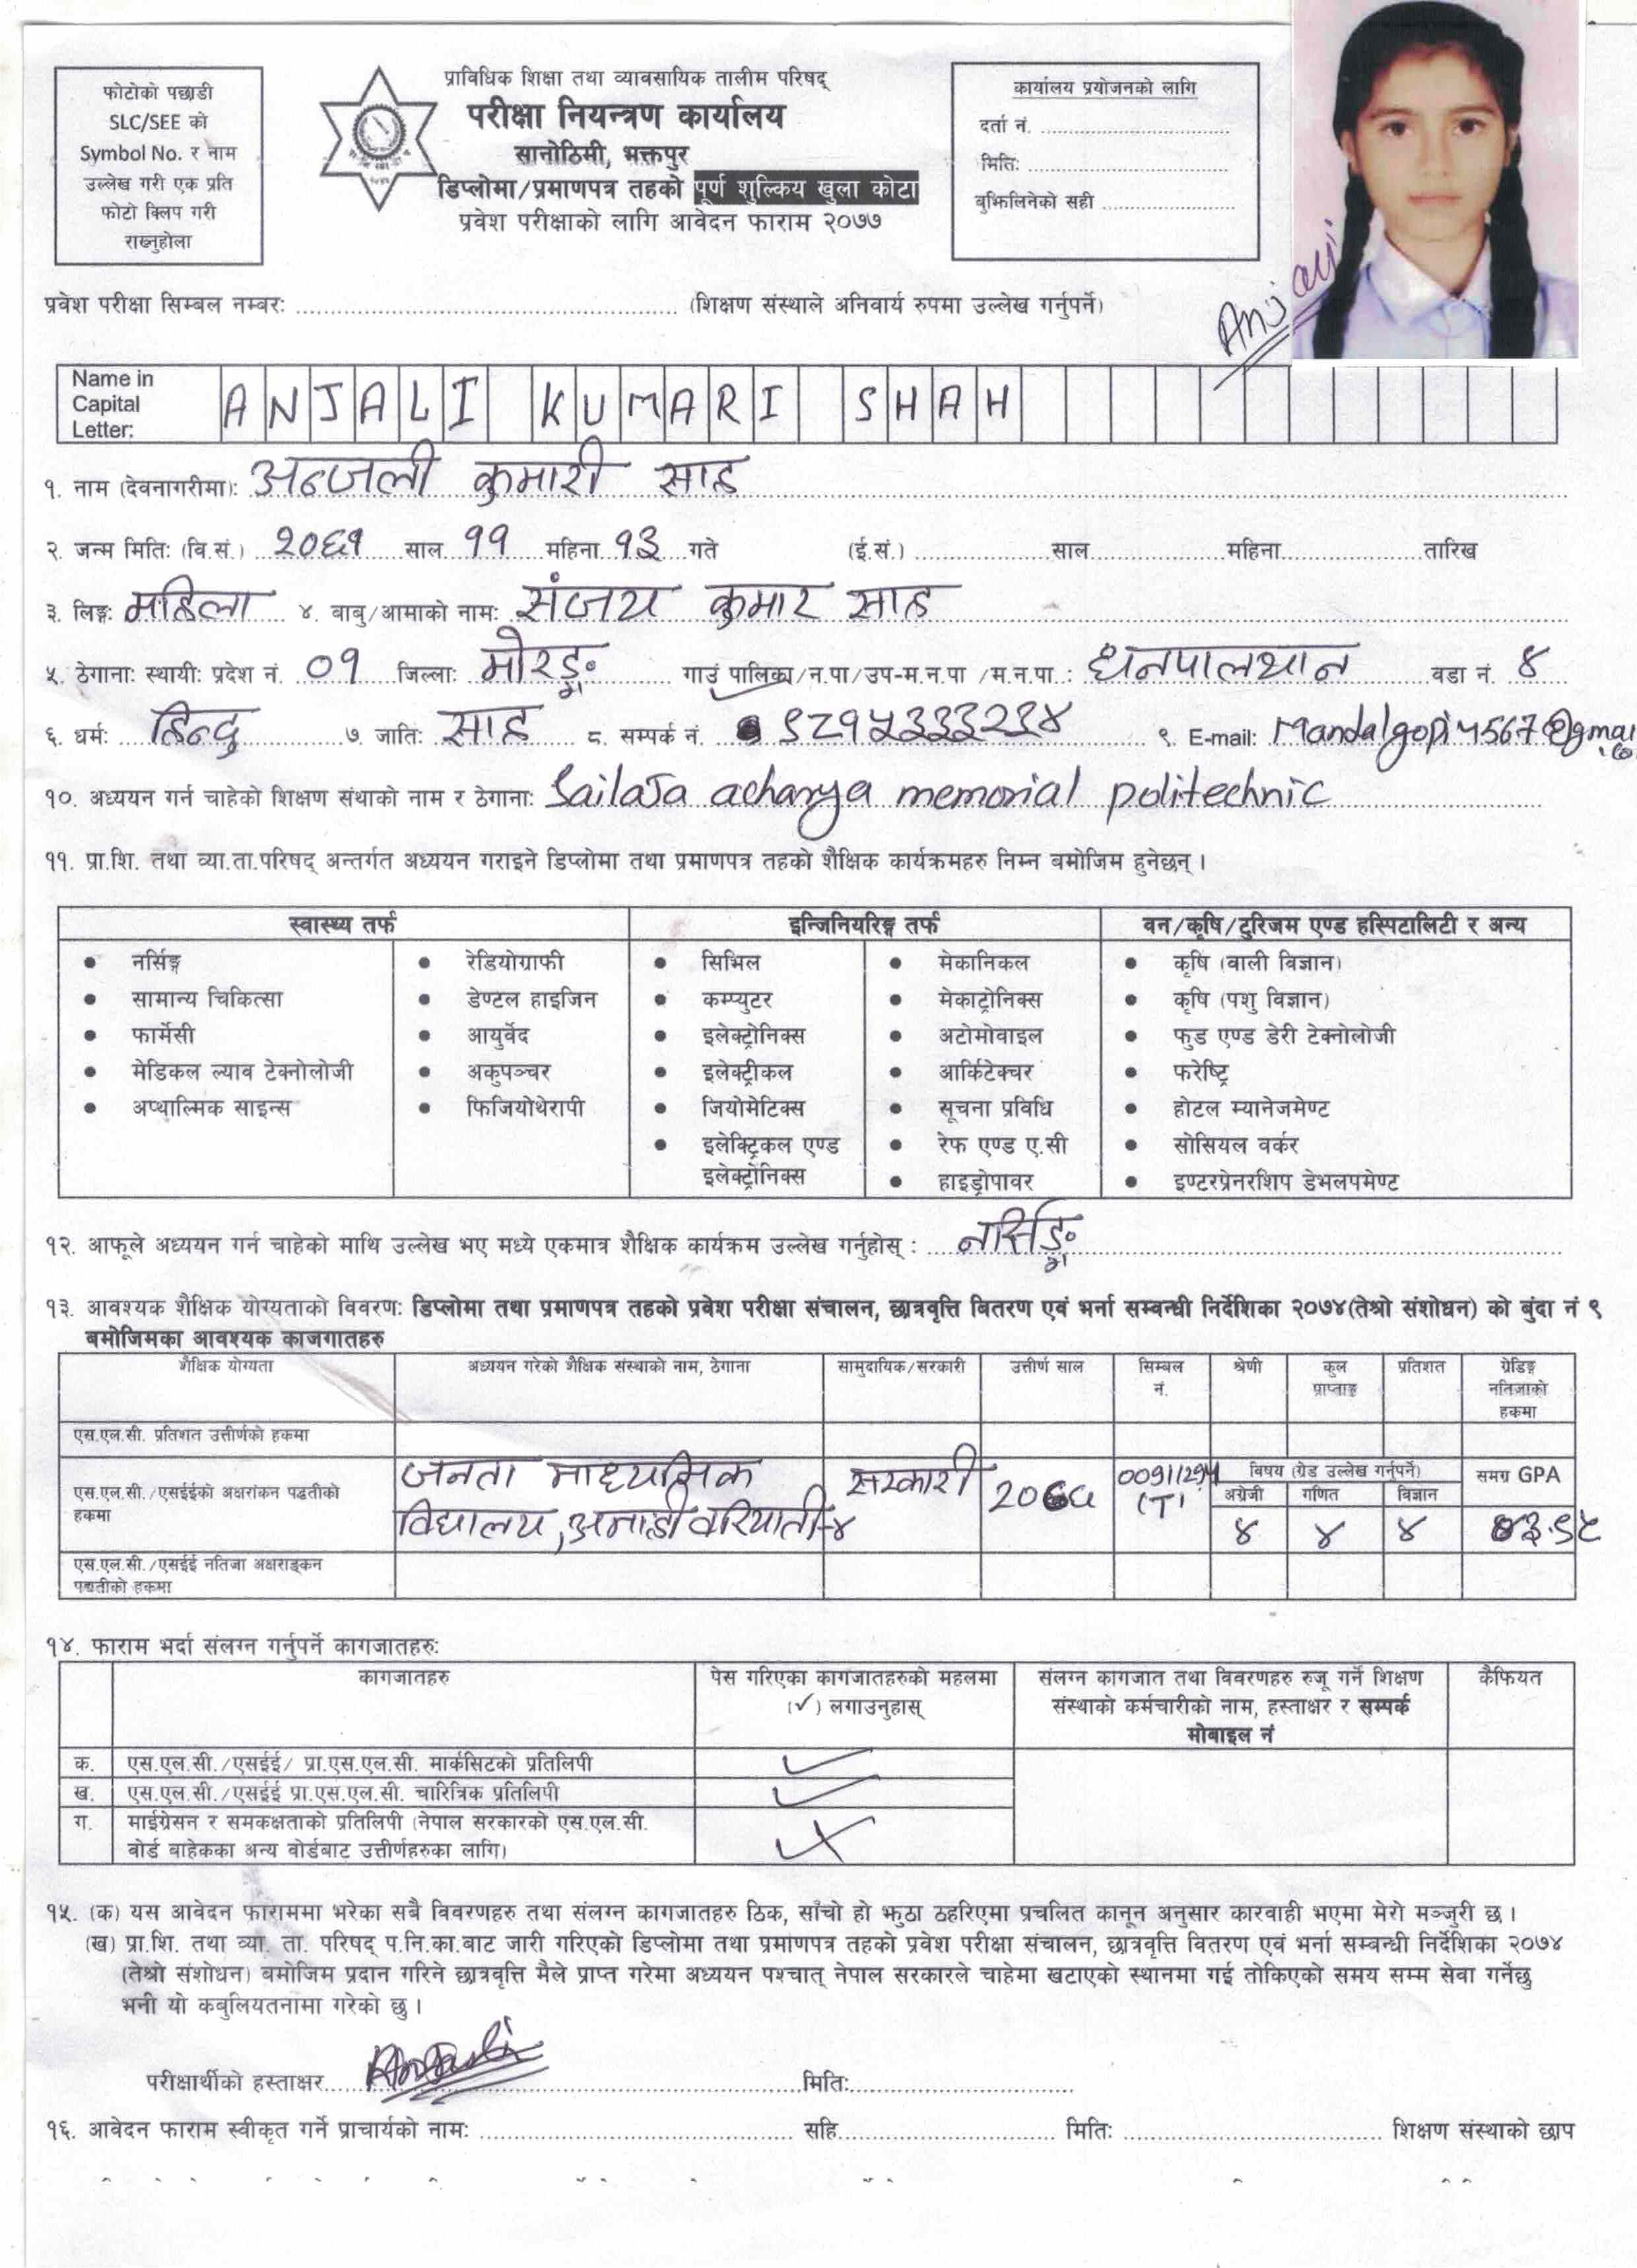 फोटोको पछाडी
SLC/SEE को
Symbol No. र नाम
उल्लेख गरी एक प्रति
फोटो क्लिप गरी
राख्नुहोला
प्राविधिक शिक्षा तथा व्यावसायिक तालीम परिषद्
परीक्षा नियन्त्रण कार्यालय
सानोठिमी, भक्तपुर
डिप्लोमा/प्रमाणपत्र तहको पूर्ण शुल्किय खुला कोटा
प्रवेश परीक्षाको लागि आवेदन फाराम २०७७
कार्यालय प्रयोजनको लागि
दर्ता नं.
मिति:
बुझिलिनेको सही
प्रवेश परीक्षा सिम्बल नम्बर: (शिक्षण संस्थाले अनिवार्य रुपमा उल्लेख गर्नुपर्ने)
Name in Capital Letter: ANJALI KUMARI SHAH
१. नाम (देवनागरीमा): अन्जली कुमारी साह
२. जन्म मिति: (वि.सं.) २०६१ साल ११ महिना १३ गते (ई.सं.) साल महिना तारिख
३. लिङ्ग: महिला ४. बाबु/आमाको नाम: संजय कुमार साह
५. ठेगाना: स्थायी: प्रदेश नं. ०१ जिल्ला: मोरङ्ग गाउं पालिका/न.पा/उप-म.न.पा /म.न.पा.: धनपालथान वडा नं. ४
६. धर्म: हिन्दु ७. जाति: साह ८. सम्पर्क नं. ९८१५३३३२३४ ९. E-mail: Mandalgopi4567@gmai
१०. अध्ययन गर्न चाहेको शिक्षण संथाको नाम र ठेगाना: Sailaja acharya memorial politechnic
११. प्रा.शि. तथा व्या.ता.परिषद् अन्तर्गत अध्ययन गराइने डिप्लोमा तथा प्रमाणपत्र तहको शैक्षिक कार्यक्रमहरु निम्न बमोजिम हुनेछन् ।
स्वास्थ्य तर्फ इन्जिनियरिङ्ग तर्फ वन/कृषि/टुरिजम एण्ड हस्पिटालिटी र अन्य
नर्सिङ्ग रेडियोग्राफी सिभिल मेकानिकल कृषि (बाली विज्ञान)
सामान्य चिकित्सा डेण्टल हाइजिन कम्प्युटर मेकाट्रोनिक्स कृषि (पशु विज्ञान)
फार्मेसी आयुर्वेद इलेक्ट्रोनिक्स अटोमोवाइल फुड एण्ड डेरी टेक्नोलोजी
मेडिकल ल्याव टेक्नोलोजी अकुपञ्चर इलेक्ट्रीकल आर्किटेक्चर फरेष्ट्रि
अप्थाल्मिक साइन्स फिजियोथेरापी जियोमेटिक्स सूचना प्रविधि होटल म्यानेजमेण्ट
इलेक्ट्रिकल एण्ड रेफ एण्ड ए.सी सोसियल वर्कर
इलेक्ट्रोनिक्स हाइड्रोपावर इण्टरप्रेनरशिप डेभलपमेण्ट
१२. आफूले अध्ययन गर्न चाहेको माथि उल्लेख भए मध्ये एकमात्र शैक्षिक कार्यक्रम उल्लेख गर्नुहोस् : नर्सिङ्ग
१३. आवश्यक शैक्षिक योग्यताको विवरण: डिप्लोमा तथा प्रमाणपत्र तहको प्रवेश परीक्षा संचालन, छात्रवृत्ति वितरण एवं भर्ना सम्बन्धी निर्देशिका २०७४(तेश्रो संशोधन) को बुंदा नं ९
बमोजिमका आवश्यक काजगातहरु
शैक्षिक योग्यता अध्ययन गरेको शैक्षिक संस्थाको नाम, ठेगाना सामुदायिक/सरकारी उत्तीर्ण साल सिम्बल नं. श्रेणी कुल प्राप्ताङ्क प्रतिशत ग्रेडिङ्ग नतिजाको हकमा
एस.एल.सी. प्रतिशत उत्तीर्णको हकमा
एस.एल.सी./एसईईको अक्षरांकन पद्धतीको हकमा जनता माध्यमिक विद्यालय, सरकारी विषय (ग्रेड उल्लेख गर्नुपर्ने) समग्र GPA
अंग्रेजी गणित विज्ञान
४ ४ ४
एस.एल.सी./एसईई नतिजा अक्षराङ्कन पद्यतीको हकमा
१४. फाराम भर्दा संलग्न गर्नुपर्ने कागजातहरु:
कागजातहरु पेस गरिएका कागजातहरुको महलमा (✓) लगाउनुहास् संलग्न कागजात तथा विवरणहरु रुजू गर्ने शिक्षण संस्थाको कर्मचारीको नाम, हस्ताक्षर र सम्पर्क मोबाइल नं कैफियत
क. एस.एल.सी./एसईई/ प्रा.एस.एल.सी. मार्कसिटको प्रतिलिपी ✓
ख. एस.एल.सी./एसईई प्रा.एस.एल.सी. चारित्रिक प्रतिलिपी ✓
ग. माईग्रेसन र समकक्षताको प्रतिलिपी (नेपाल सरकारको एस.एल.सी.
बोर्ड बाहेकका अन्य बोर्डबाट उत्तीर्णहरुका लागि)
१५. (क) यस आवेदन फाराममा भरेका सबै विवरणहरु तथा संलग्न कागजातहरु ठिक, साँचो हो झुठा ठहरिएमा प्रचलित कानून अनुसार कारवाही भएमा मेरो मञ्जुरी छ ।
(ख) प्रा.शि. तथा व्या. ता. परिषद् प.नि.का.बाट जारी गरिएको डिप्लोमा तथा प्रमाणपत्र तहको प्रवेश परीक्षा संचालन, छात्रवृत्ति वितरण एवं भर्ना सम्बन्धी निर्देशिका २०७४
(तेश्रो संशोधन) बमोजिम प्रदान गरिने छात्रवृत्ति मैले प्राप्त गरेमा अध्ययन पश्चात् नेपाल सरकारले चाहेमा खटाएको स्थानमा गई तोकिएको समय सम्म सेवा गर्नेछु
भनी यो कबुलियतनामा गरेको छु ।
परीक्षार्थीको हस्ताक्षर मिति:
१६. आवेदन फाराम स्वीकृत गर्ने प्राचार्यको नाम: सहि मिति: शिक्षण संस्थाको छाप